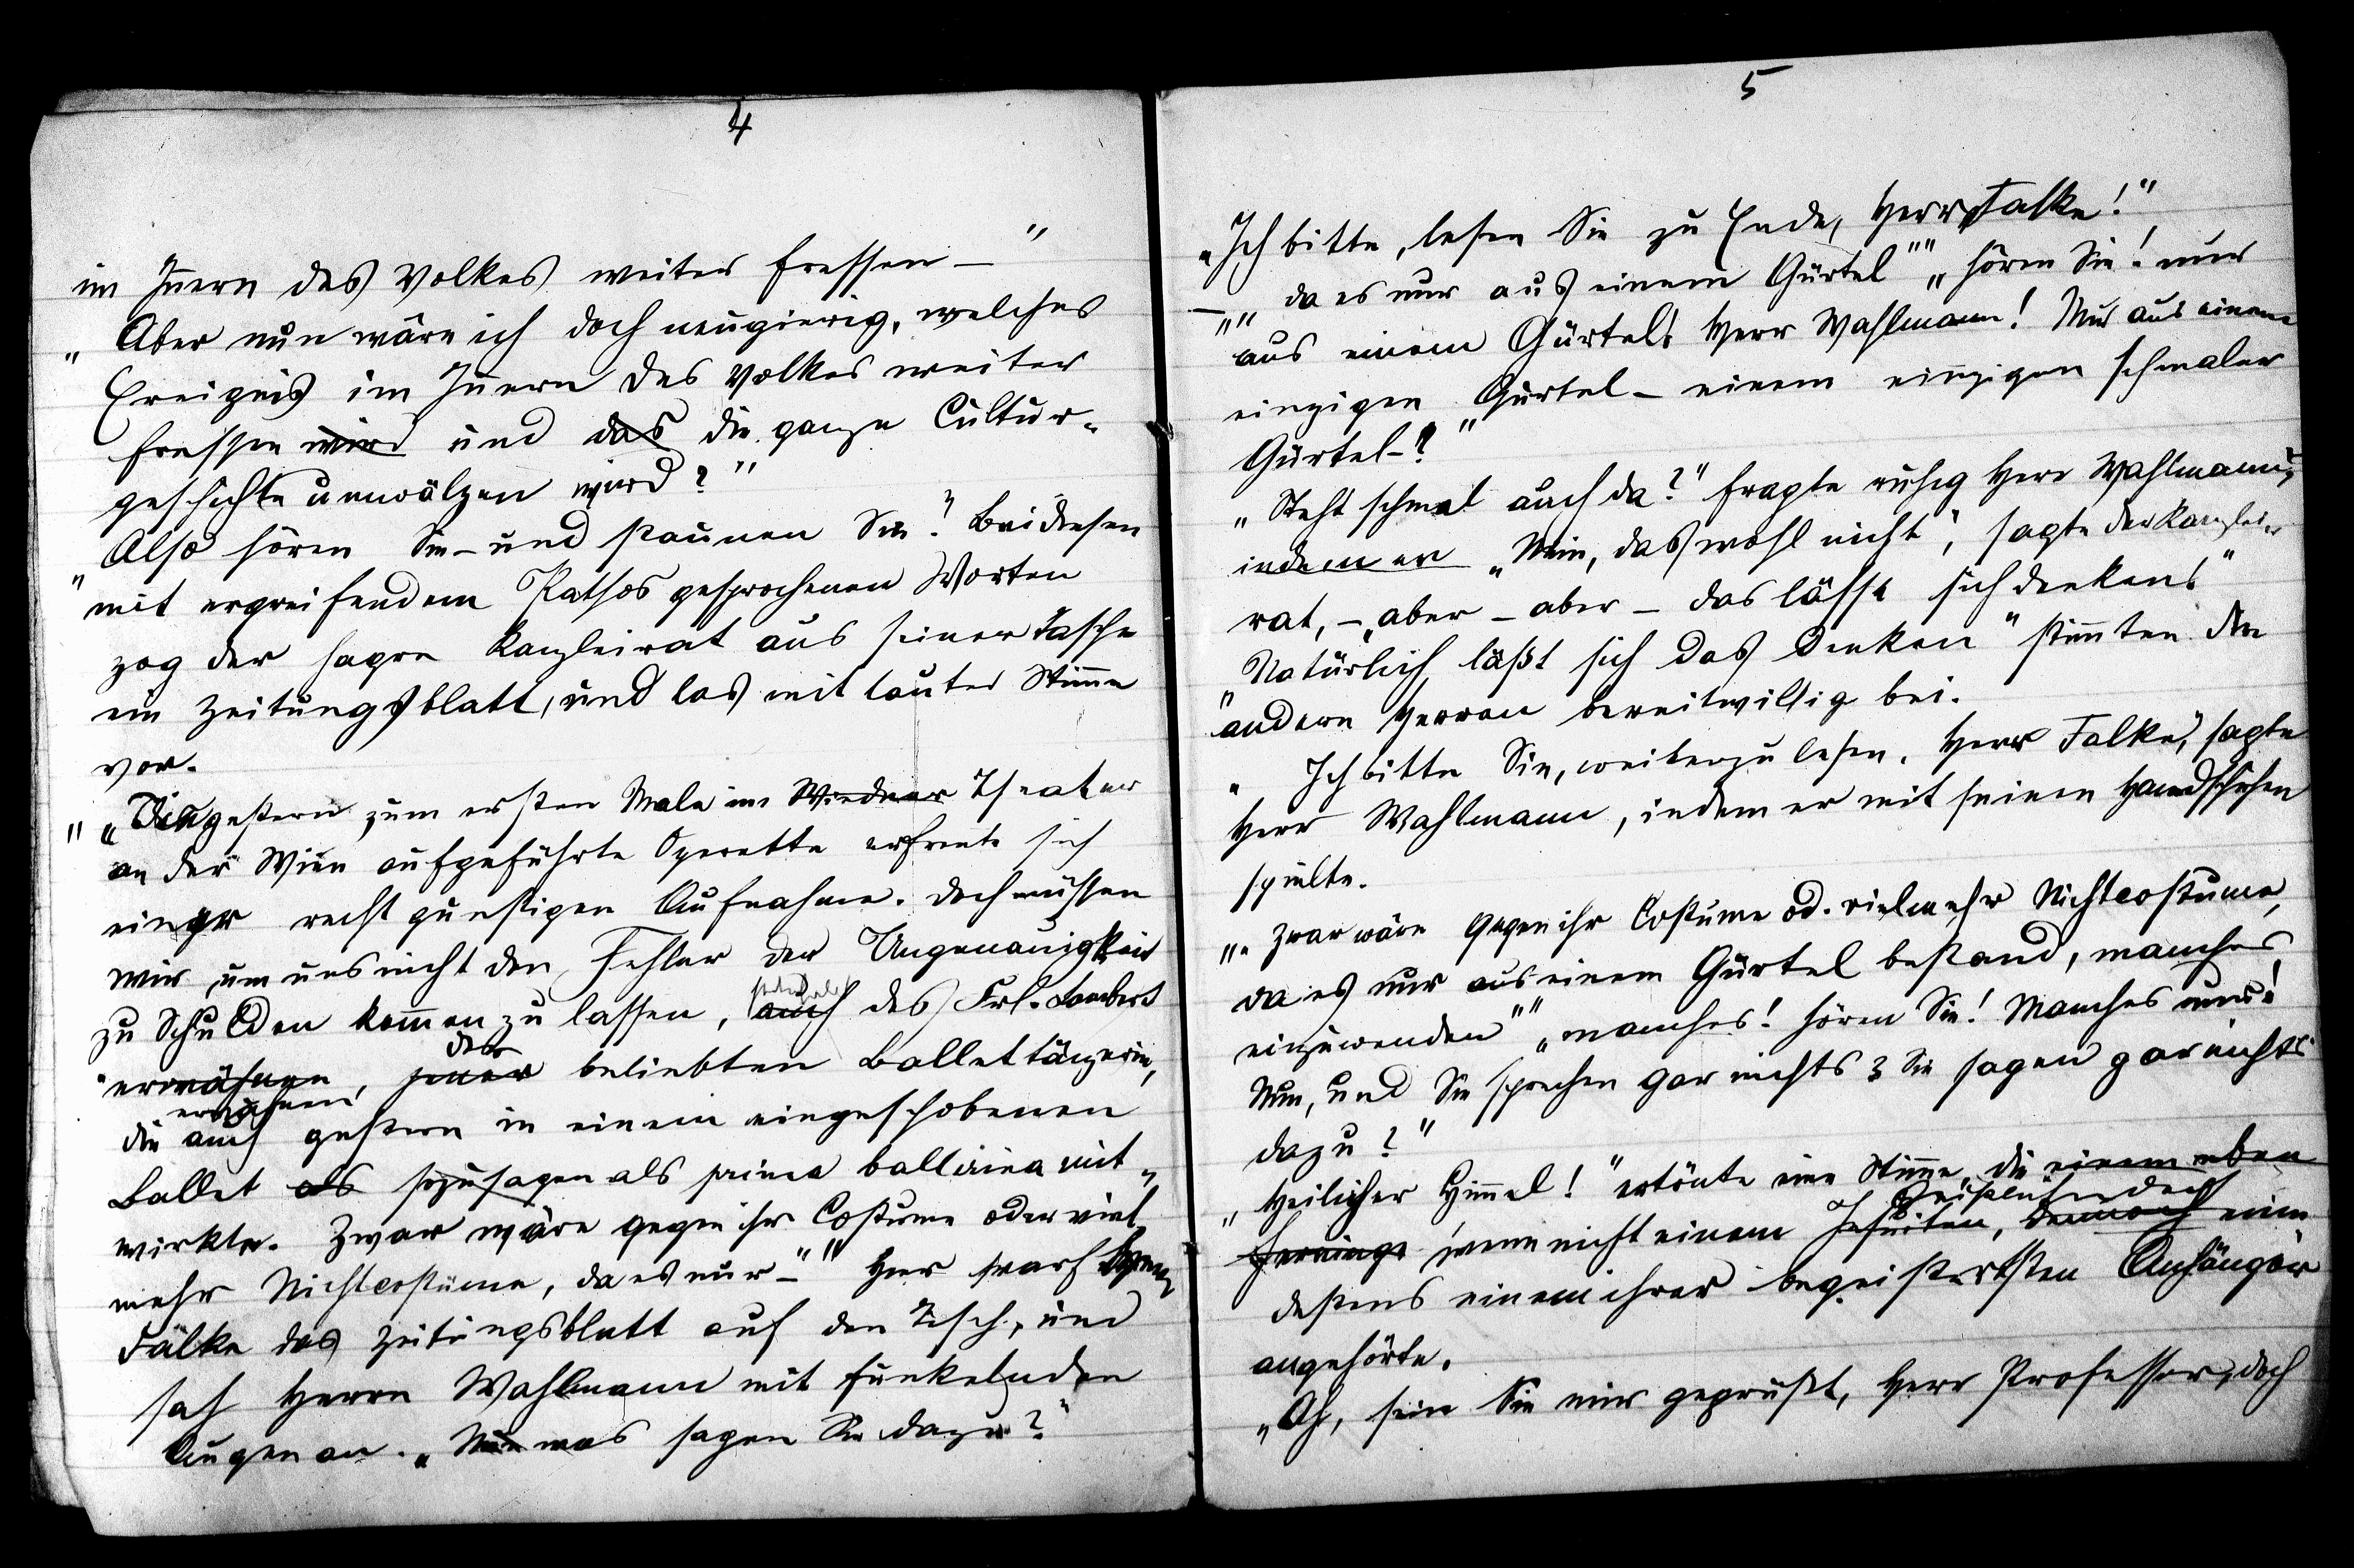 4
im Innern des Volkes weiter fressen – "
„ Aber nun wäre ich doch neugierig, welches
Ereignis im Innern des Volkes weiter
fressen wird und das die ganze Cultur-
geschichte umwälzen wird? "
„ Also hören Sie – und staunen Sie!" Bei diesen
mit ergreifendem Pathos gesprochenen Worten
zog der hagre Kanzleirat aus seiner Tasche
ein Zeitungsblatt, und las mit lauter Stimme
vor.
„ „ Die gestern zum ersten Male im Wiedner Theater
an der Wien aufgeführte Operette erfreute sich
einer recht günstigen Aufnahme. Doch müssen
wir, um uns nicht den Fehler der Ungenauigkeit
zu Schulden kommen zu lassen, auch des Frl. Lambert
erwähnen, jener der beliebten Ballettänzerin,
erwähnen,
die auch gestern in einem eingeschobenen
Ballet als sozusagen als prima ballerina mit-
wirkte. Zwar wäre gegen ihr Costume oder viel-
mehr Nichtcostüme, da es nur –" " Hier warf Herr
Falke das Zeitungsblatt auf den Tisch, und
sah Herrn Wahlmann mit funkelnden
Augen an. „ Nun was sagen Sie dazu? "
5
„Ich bitte, lesen Sie zu Ende, Herr Falke!"
– „„ da es nur aus einem Gürtel"" „ hören Sie! nur
aus einem Gürtel! Herr Wahlmann! Nur aus einem
einzigen Gürtel – einem einzigen schmalen
Gürtel –! "
„ Steht schmal auch da?" fragte ruhig Herr Wahlmann,
indem er „ Nein, das wohl nicht", sagte der Kanzlei-
rat, – „aber – aber – das lässt sich denken!"
„ Natürlich läßt sich das denken" stimmten die
andern Herren bereitwillig bei.
„ Ich bitte Sie, weiterzulesen, Herr Falke," sagte
Herr Wahlmann, indem er mit seinen Handschuhen
spielte.
„„ Zwar wäre gegen ihr Costume od. vielmehr Nichtcostume,
da es nur aus einem Gürtel bestand, manches
einzuwenden"" „ manches! hören Sie! Manches nur!
Nun, und Sie sprechen gar nichts? Sie sagen gar nichts
dazu? "
„ Heiliger Himmel! " ertönte eine Stimme, die einem eben
wenn nicht einem Jesuiten, dennoch
destens einem ihrer begeistertsten Anhänger
angehörte.
„Oh, sein Sie mir gegrüßt, Herr Professor, doch